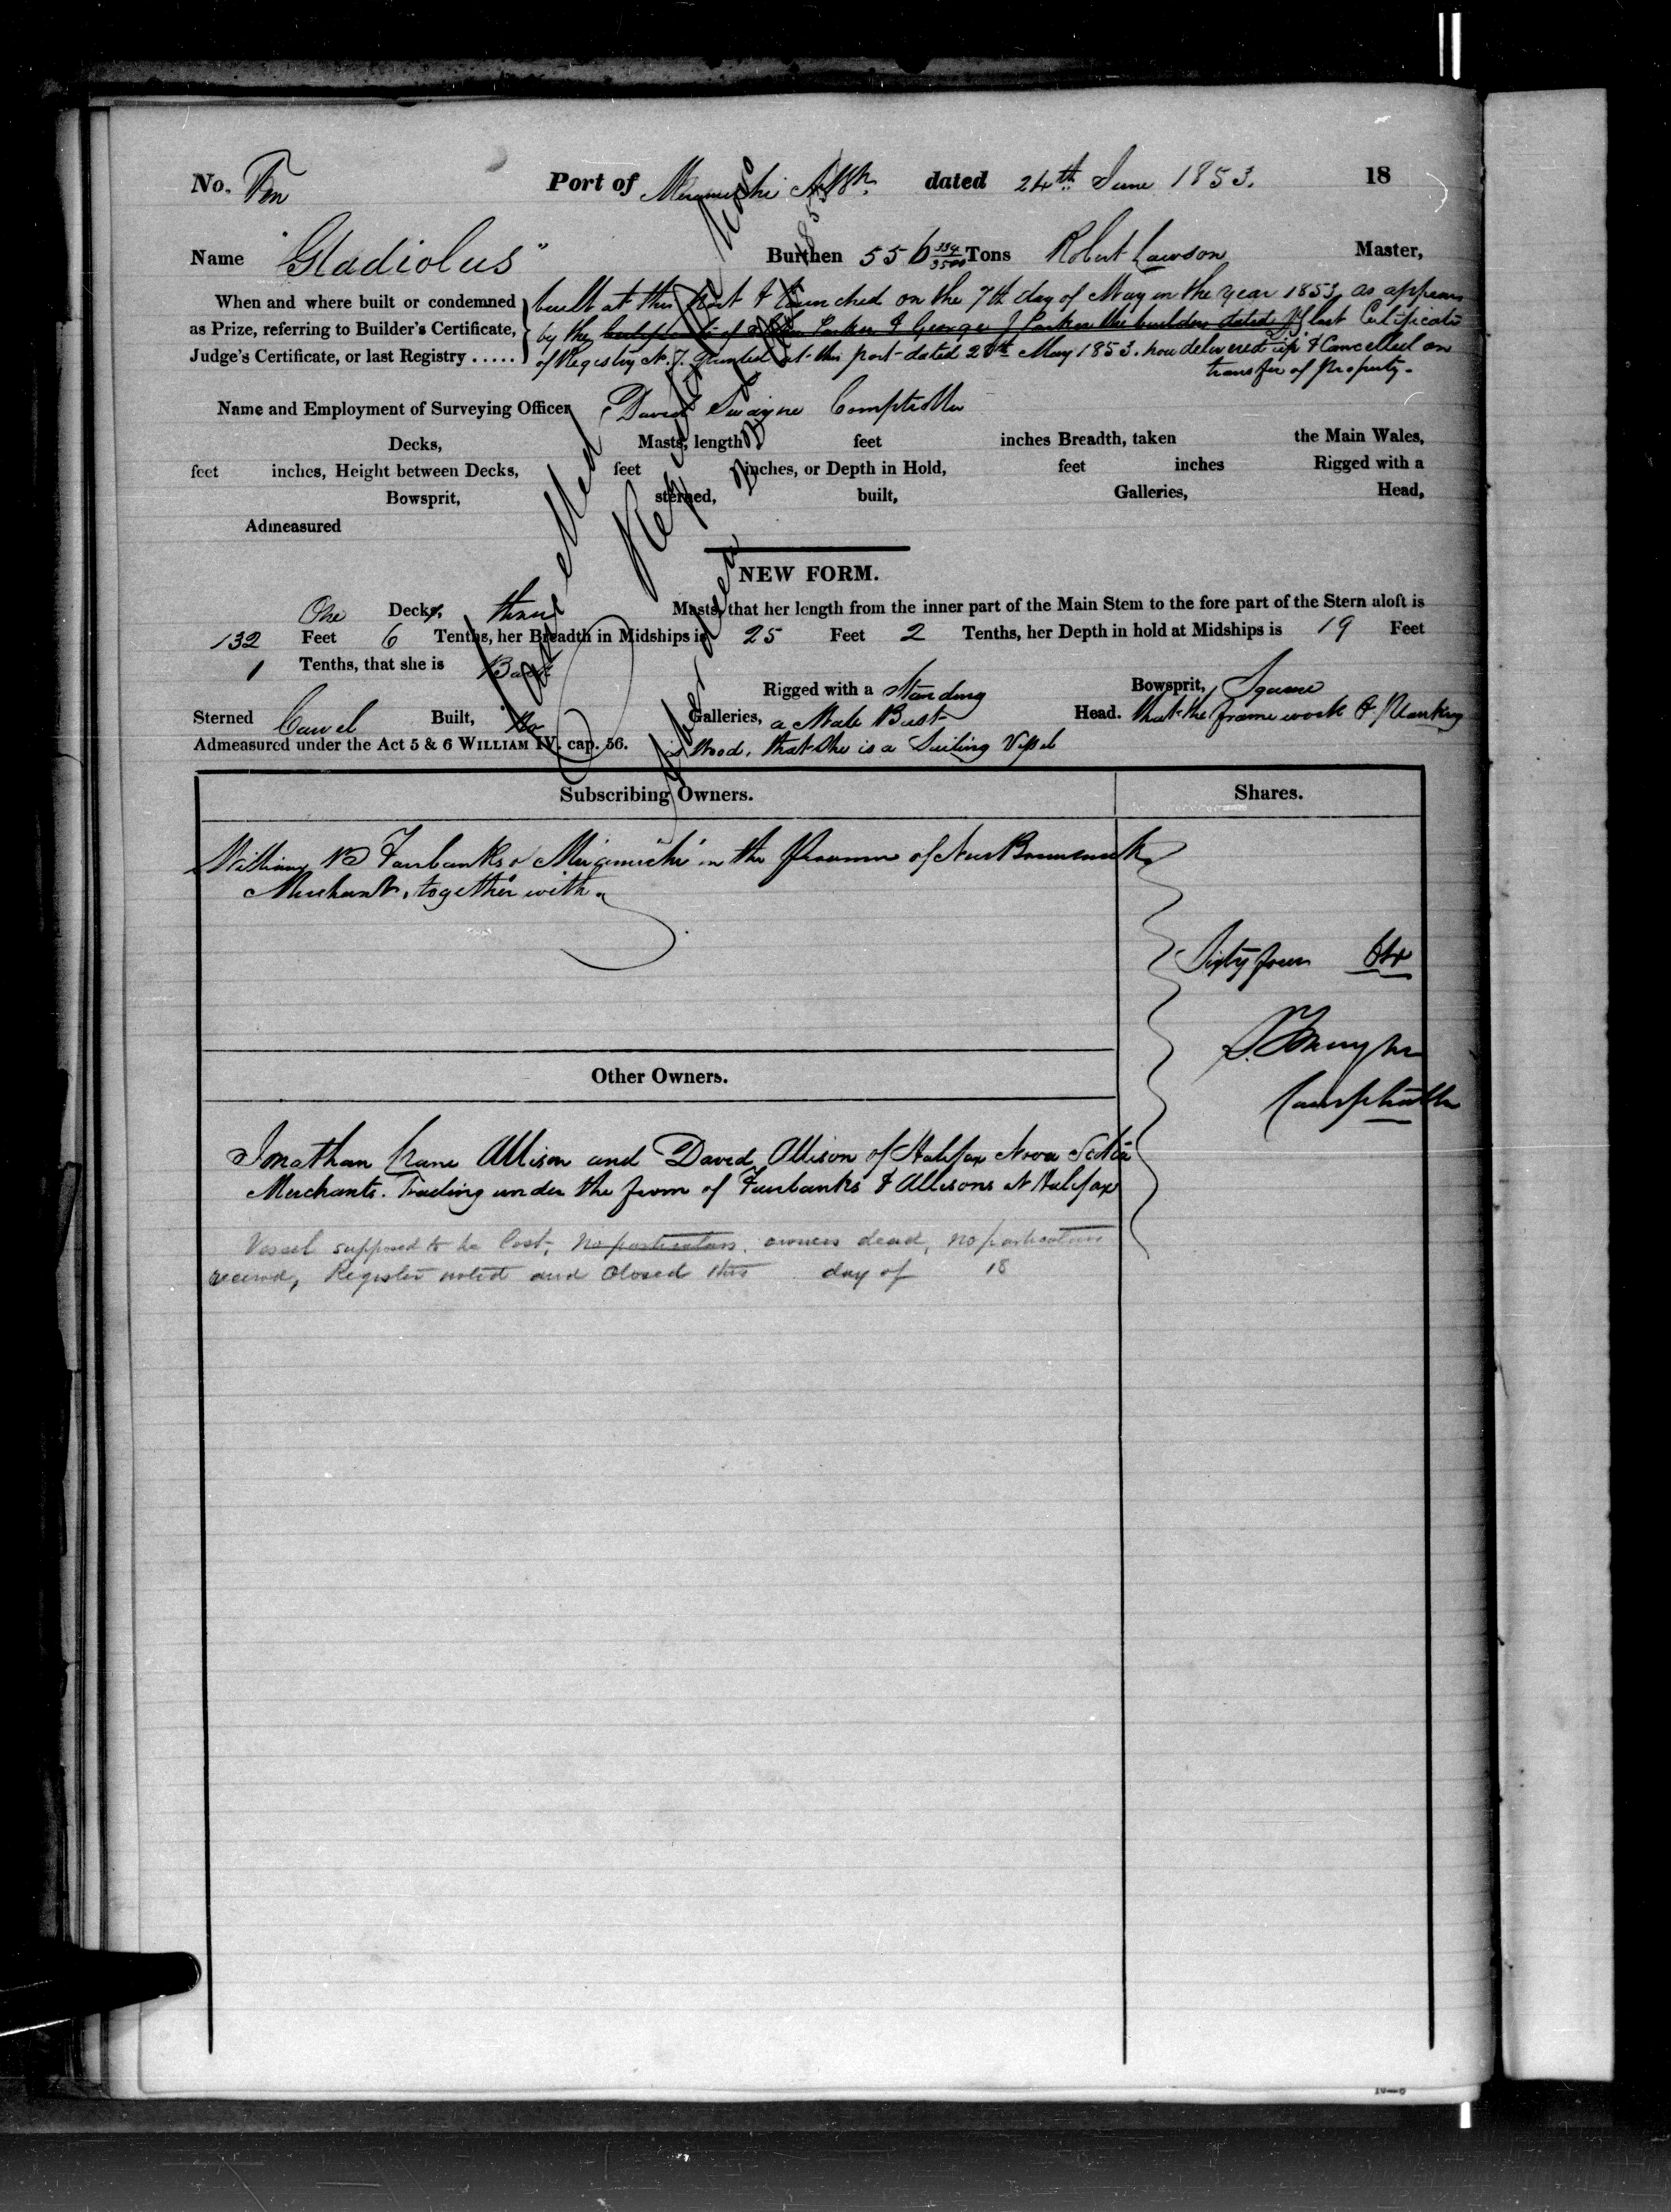 No. Ten Port of Miramichi N.Bk. dated 24th June 1853. 18
Name "Gladiolus" Burthen 556 394/3500 Tons Robert Lawson Master,
When and where built or condemned
as Prize, referring to Builder's Certificate,
Judge's Certificate, or last Registry .....
built at this Port & launched on the 7th day of May in the year 1853, as appears
by the Parker & George J Parker the builders dated last Certificate
of Registry No. 7. granted at this port dated 28th May 1853. now delivered up & Cancelled on
transfer of Property.
Name and Employment of Surveying Officer, David Swayne Comptroller
Decks, Masts, length feet inches Breadth, taken the Main Wales,
feet inches, Height between Decks, feet inches, or Depth in Hold, feet inches Rigged with a
Bowsprit, sterned, built, Galleries, Head,
Admeasured
NEW FORM.
One Decks, three Masts, that her length from the inner part of the Main Stem to the fore part of the Stern aloft is
132 Feet 6 Tenths, her Breadth in Midships is 25 Feet 2 Tenths, her Depth in hold at Midships is 19 Feet
1 Tenths, that she is Barque
Rigged with a Standing Bowsprit, Square
Sterned Carvel Built, No Galleries, a Male Bust Head. that the frame work & Planking
Admeasured under the Act 5 & 6 WILLIAM IV. cap. 56. is Wood, that she is a Sailing Vessel
Cancelled
Subscribing Owners. Shares.
William B Fairbanks of Miramichi in the Province of New Brunswick
Merchant, together with
Sixty four 64
Comptroller
Other Owners.
Jonathan Crane Allison and David Allison of Halifax Nova Scotia
Merchants. Trading under the firm of Fairbanks & Allisons at Halifax
Vessel supposed to be lost, No particulars. owners dead, no particulars
received, Register noted and Closed this day of 18